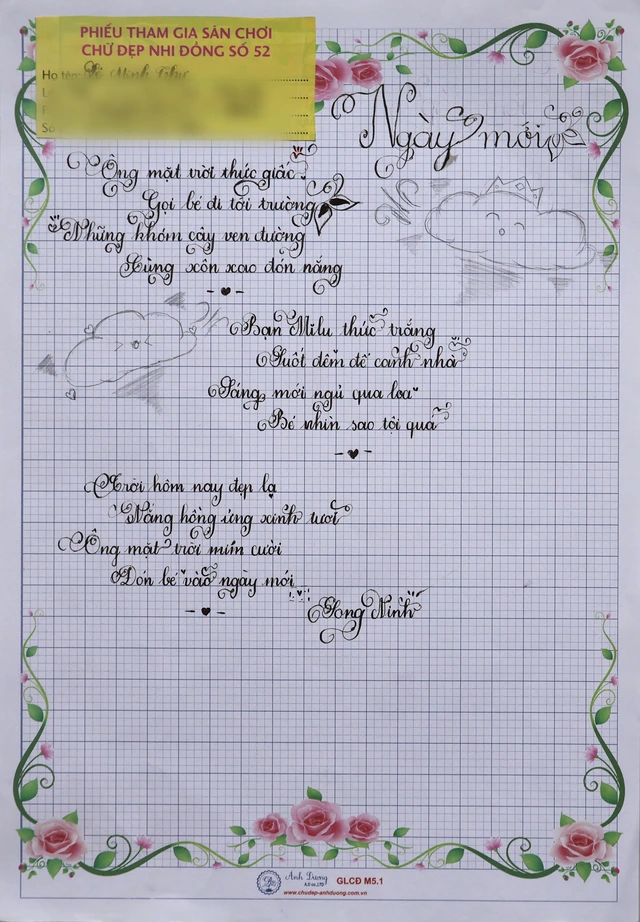 PHIẾU THAM GIA SÂN CHƠI
CHỮ ĐẸP NHI ĐỒNG SỐ 52
Họ tên: Minh Thư
Ngày mới
Ông mặt trời thức giấc
Gọi bé đi tới trường
Những khóm cây ven đường
Cùng xôn xao đón nắng
Bạn Milu thức trắng
Suốt đêm để canh nhà
Sáng mới ngủ qua loa
Bé nhìn sao tội quá
Trời hôm nay đẹp lạ
Nắng hồng ửng xinh tươi
Ông mặt trời mỉm cười
Đón bé vào ngày mới
Song Ninh
Anh Dương
GLCĐ M5.1
www.chudep-anhduong.com.vn